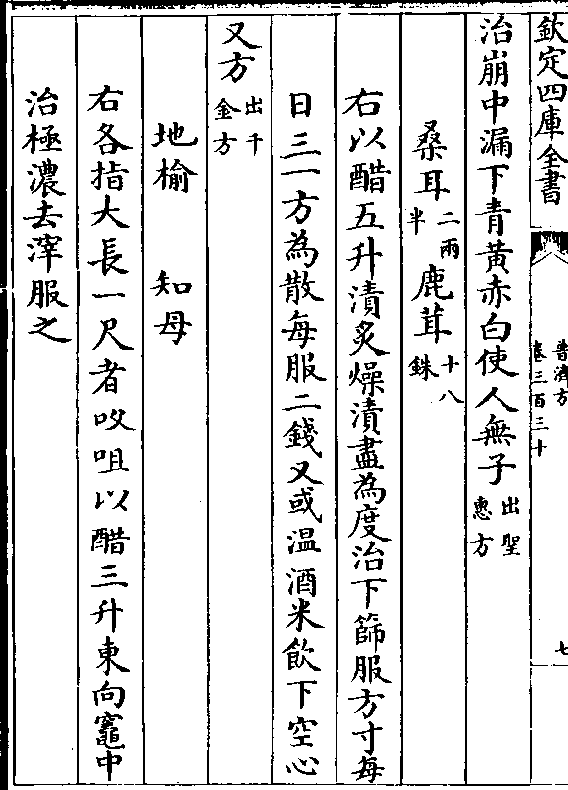 欽定四庫全書
普濟方
卷三百三十
七
治崩中漏下青黃赤白使人無子出聖惠方
桑耳二兩半 鹿茸十八銖
右以醋五升漬炙燥漬盡為度治下篩服方寸每
日三一方為散每服二錢又或温酒米飲下空心
又方出千金方
地榆 知母
右各指大長一尺者㕮咀以醋三升東向竈中
治極濃去滓服之